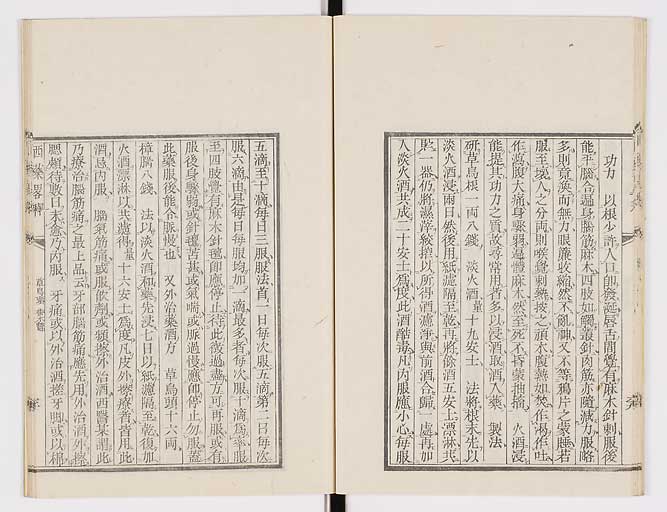 功力　以根少許入口卽發涎唇舌間覺有麻木針刺服後
能平腦合遍身腦筋麻木四肢如觸叢針內筋亦隨減力服略
多則竟痪而無力眼簾收縮然不亂神又不等鴉片之蒙睡若
服至壞人之分兩則喉覺刺辣按之頭木腹熱如焚作渴作吐
作瀉腹大痛身驟弱遍體麻木然至死不昏蒙抽搐　火酒浸
能提其功力之質故尋常用者多以浸酒取酒入藥　製法
研草烏根一兩八錢　淡火酒量十九安士　法將根末先以
淡火酒浸兩日然後用紙濾隔至乾再將餘酒五安士漂淋共
貯一器仍將濕滓絞搾以所得酒濾淨與前酒合歸一處再加
入淡火酒共成二十安士爲度此酒酷毒凡內服應小心每服
五滴至十滴每日三服服法首一日每次服五滴第二日每次
服六滴由是每日每服均加一滴最多者每次服十滴爲率服
至四肢覺有麻木針氊卽應停止待此微過盡方可再服或有
服後身驟弱或針氊苦甚或氣喘或脈過慢應卽停止勿服蓋
此藥服後能令脈慢也　又外治藥酒方　草烏頭十六兩
樟腦八錢　法以淡火酒和藥先浸七日以紙濾隔至乾復加
火酒漂淋以共濾得量十六安士爲度凡皮外擦療者常用此
酒忌內服　腦氣筋痛或服飲劑或頻擦外治酒西醫某謂此
乃療治腦筋痛之最上品云牙部腦筋痛應先用外治酒外擦
腮頰待數日未愈乃內服　牙痛或以外治酒擦牙脚或以棉
西藥畧釋
草烏藥